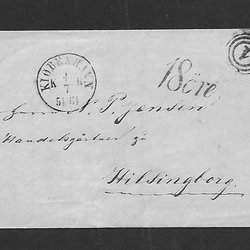 KJØBENHAVN
4
7
18 öre
1
Herrn N. P. Jensen
Handelsgärtner zu
Hilsingborg.